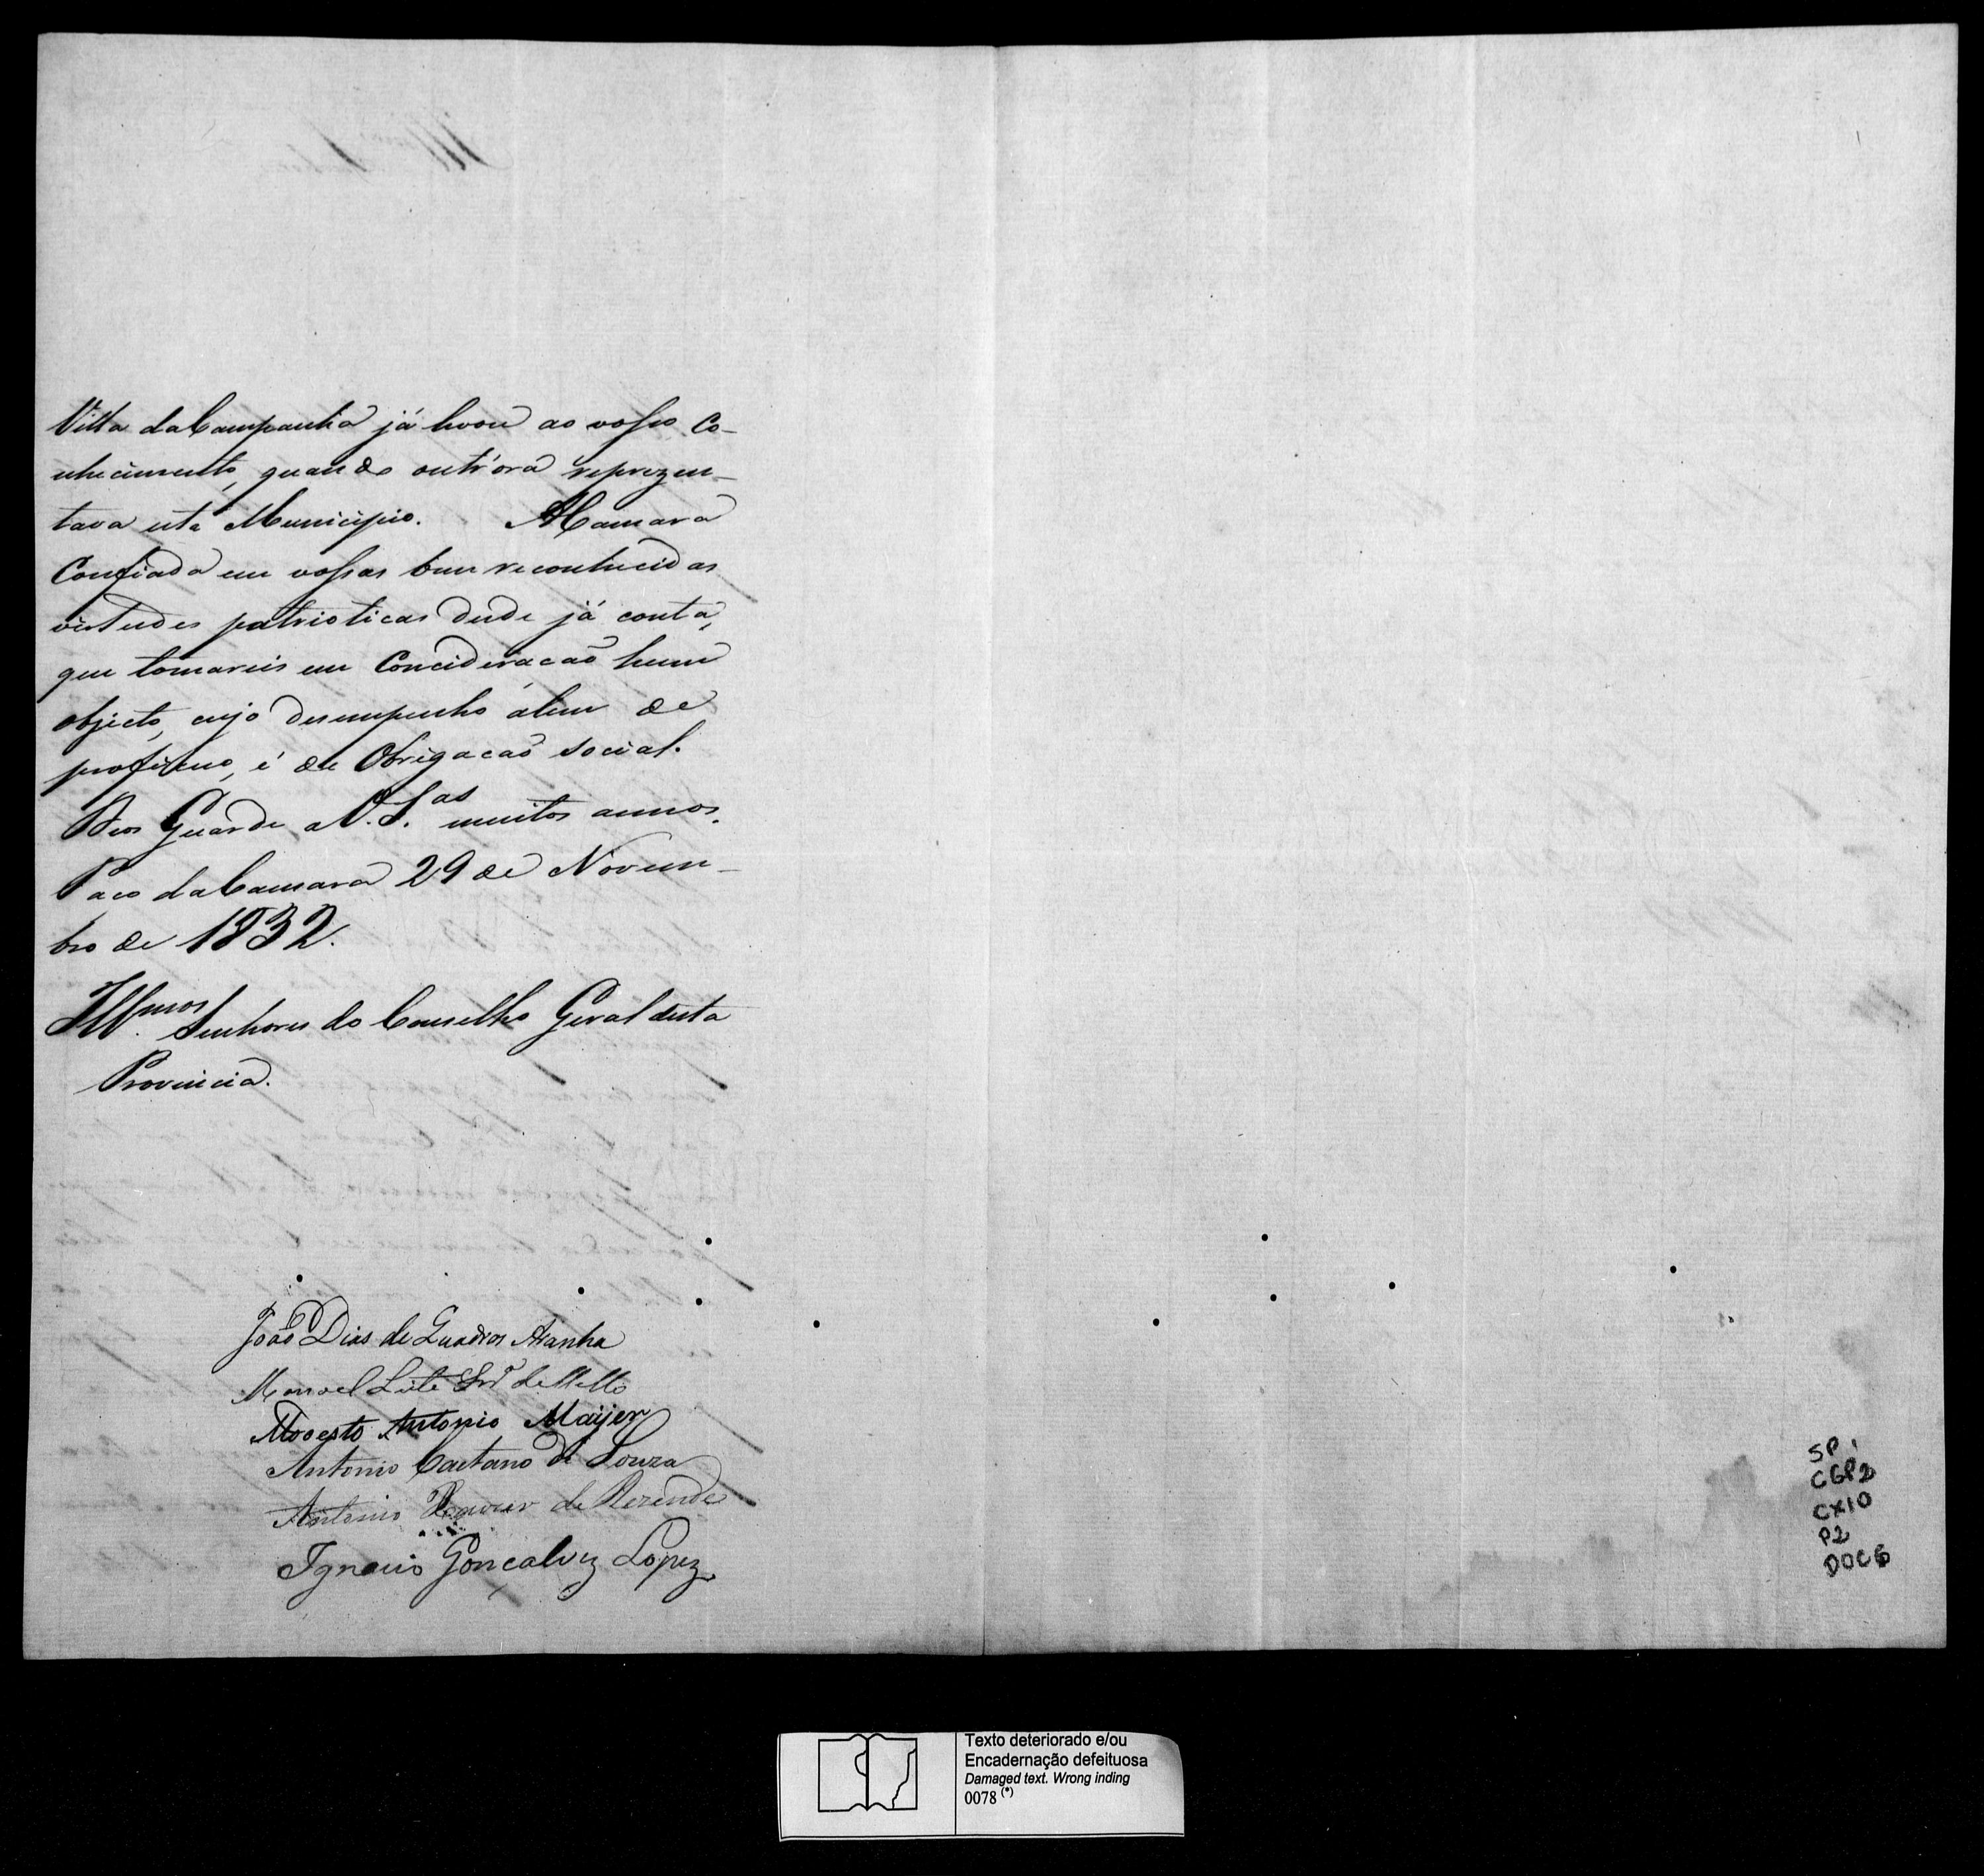 Villa da Campanha já levou ao vosso co-
nhecimento, quando outr'ora reprezen-
tava este Municipio. A Camara
Confiada em vossas bem reconhecidas
virtudes patrioticas desde já conta,
que tomareis em Concideracaõ hum
objecto, cujo desempenho alem de
proficuo, é de Obrigacaõ social.
Deos Guarde a V. S.as muitos annos.
Paco da Camara 29 de Novem-
bro de 1832.
Ill.mos Senhores do Conselho Geral desta
Provincia.
João Dias de Quadros Aranha
Manoel Leite de Mello
Modesto Antonio Maijer
Antonio Caetano de Souza
Antonio Xavier de Rezende
Ignacio Goncalvez Lopez
SP.
CGP2
CX10
P2
DOC6
Texto deteriorado e/ou
Encadernação defeituosa
Damaged text. Wrong inding
0078 (*)